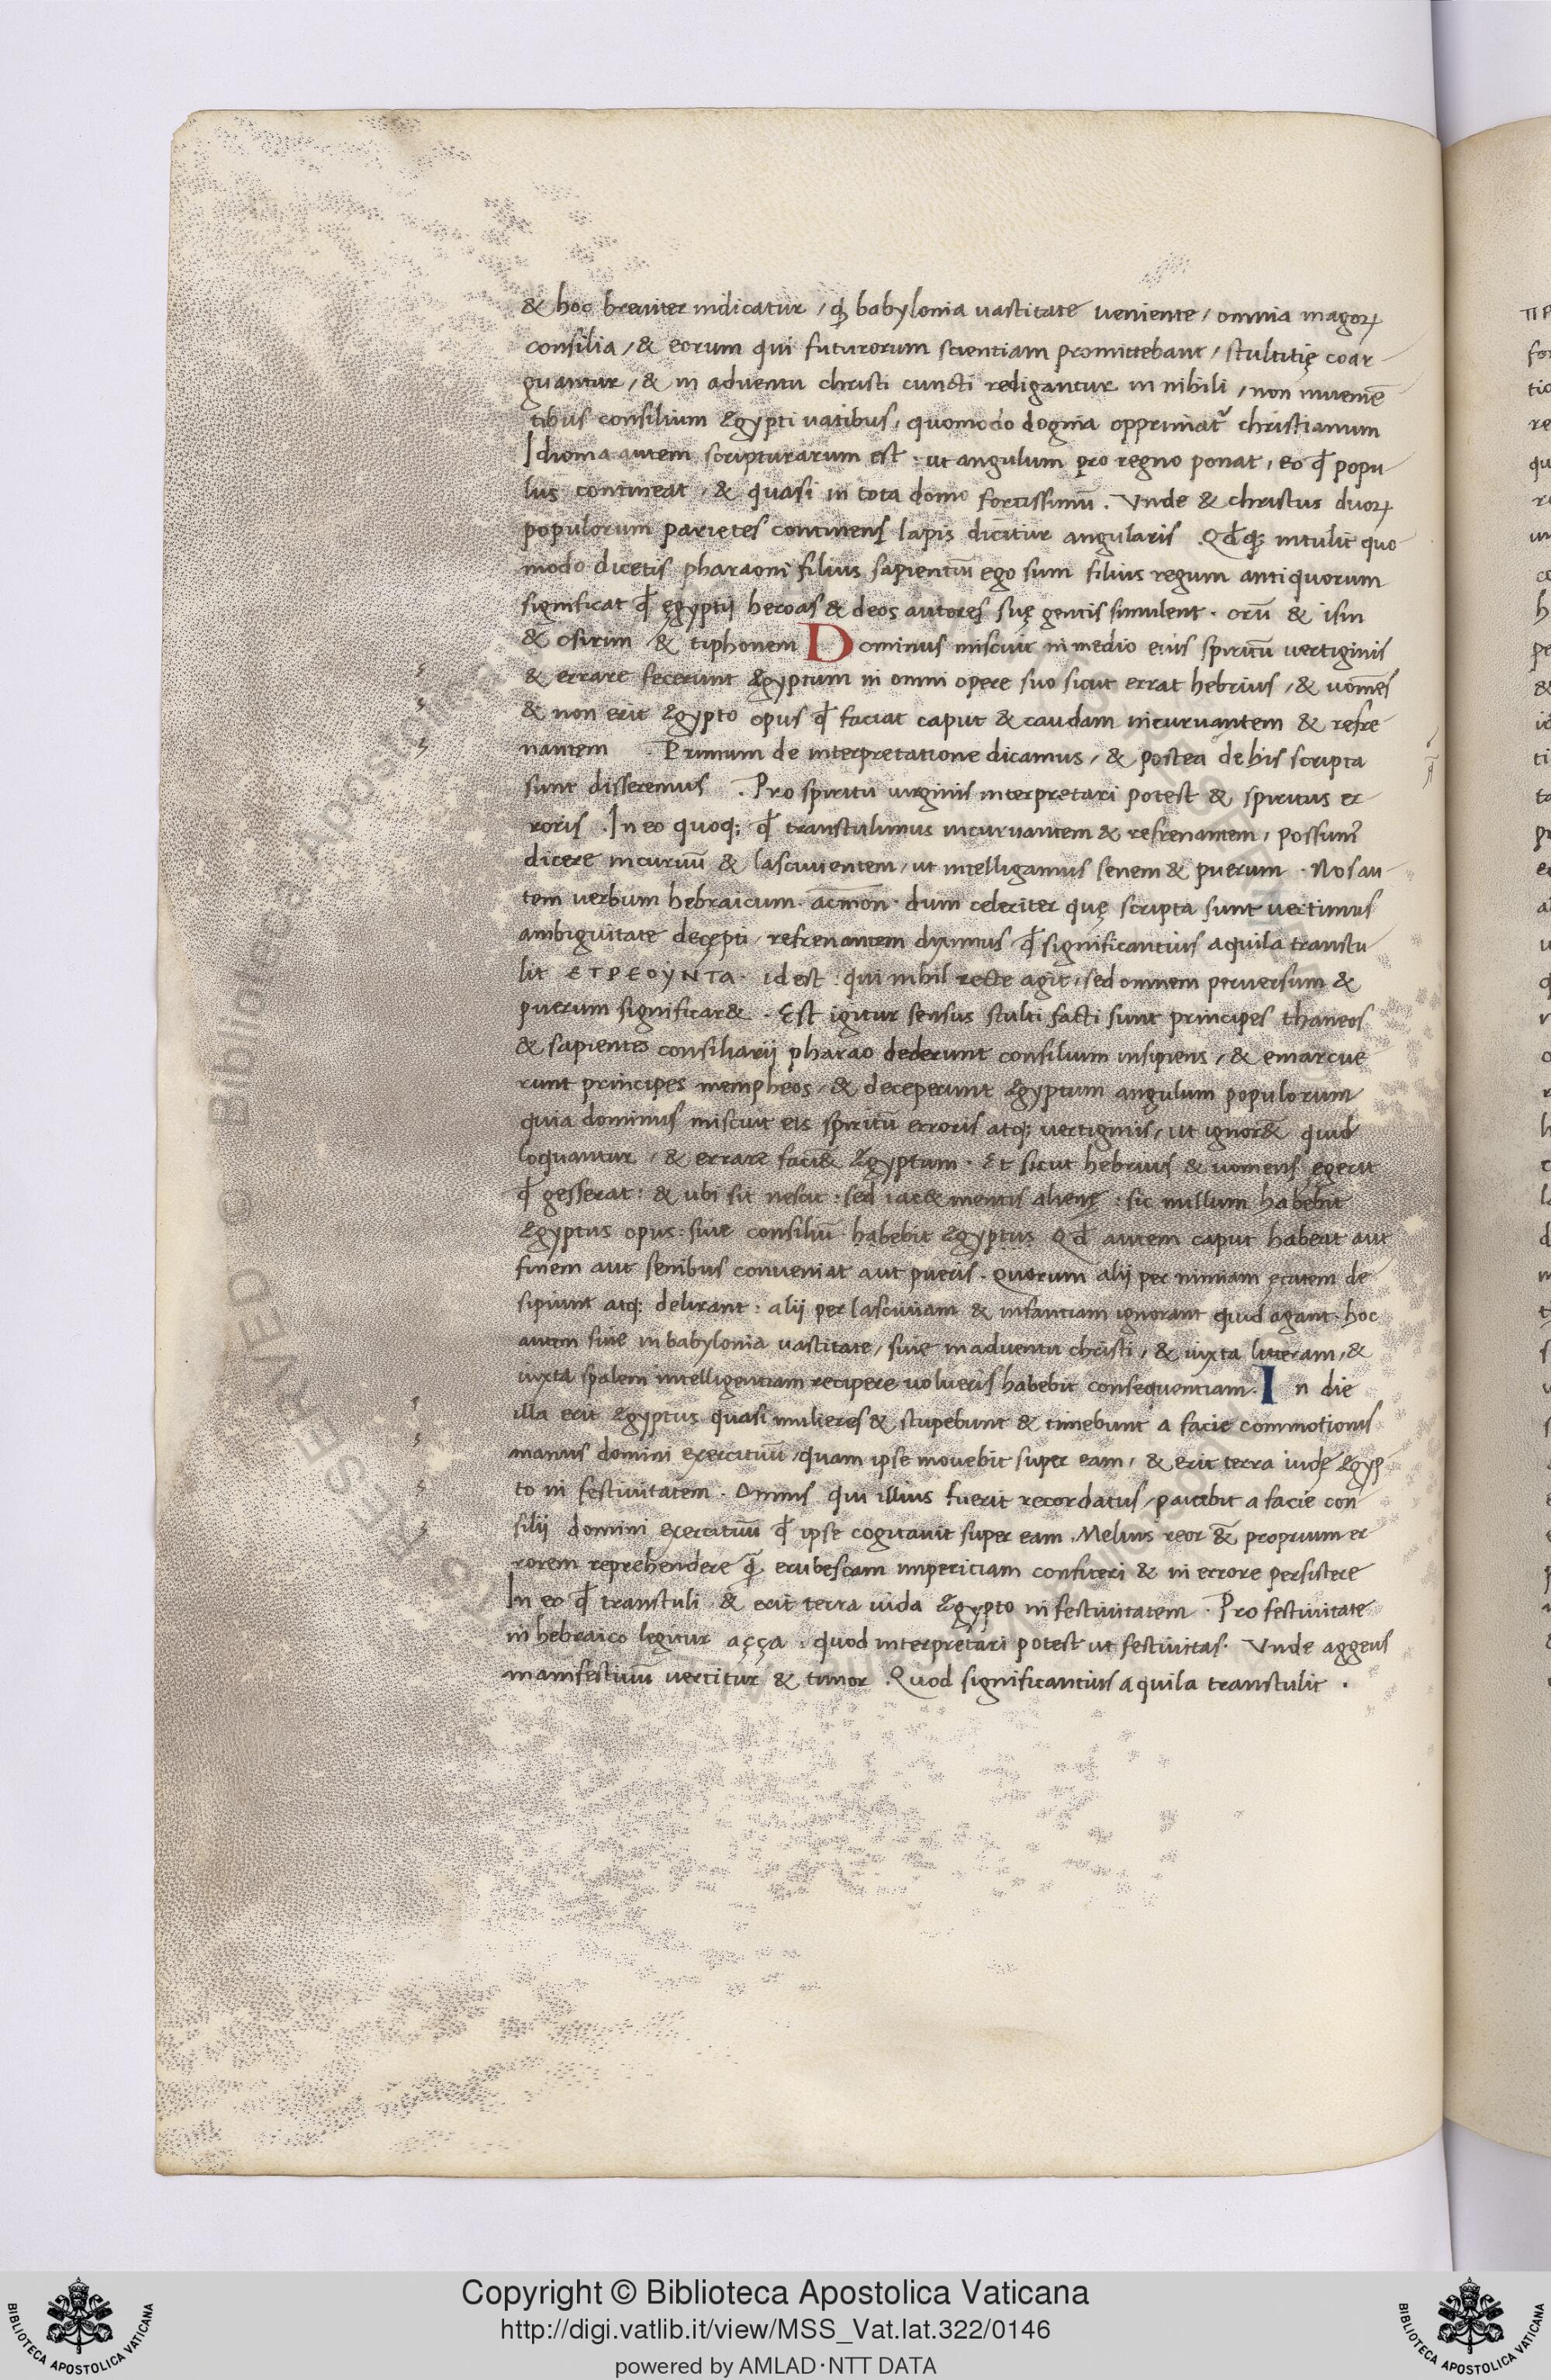 & hoc breuiter indicatur / qđ babylonia uastitate ueniente / omnia magoꝝ
consilia / & eorum qui futurorum scientiam promittebant / stultitię coar
guantur / & in aduentu christi cuncti redigantur in nihili / non inueniẽ
tibus consilium ægypti uatibus / quomodo dogma opprimat᷑ christianum
Idioma autem scripturarum est : ut angulum pro regno ponat / eo qđ popu
lus contineat / & quasi in tota domo fortissimũ . Vnde & christus duoꝝ
populorum parietes continens lapis dicitur angularis . Qđq; intulit quo
modo dicetis pharaoni filius sapientiũ ego sum filius regum antiquorum
significat qđ ęgyptij heroas & deos autores suę gentis simulent . orũ & isin
& osirim / & tiphonem Dominus miscuit in medio eius spiritũ uertiginis
& errare fecerunt ægyptum in omni opere suo sicut errat hebrius / & uomẽs
& non erit ægypto opus qđ faciat caput & caudam incuruantem & refre
nantem . Primum de interpretatione dicamus / & postea de his scripta
sunt disseremus . Pro spiritu uirginis interpretari potest & spiritus er
roris . In eo quoq; qđ transtulimus incuruantem & refrenantem / possum᷑
dicere incuruũ & lasciuientem / ut intelligamus senem & puerum . Nos au
tem uerbum hebraicum . acmon . dum celeriter quę scripta sunt uertimus
ambiguitate decępti / refrenantem diximus qđ significantius aquila transtu
lit ΕΤΡΕΟΥΝΤΑ . id est : qui nihil recte agit / sed omnem peruersum &
puerum significar& . Est igitur sensus stulti facti sunt principes thaneos
& sapientes consiliarij pharao dederunt consilium insipiens / & emarcue
runt principes mempheos / & deceperunt ægyptum angulum populorum
quia dominus miscuit eis spiritũ erroris atq; uertiginis / ut ignor& quid
loquantur / & errare faci& ægyptum . Et sicut hebrius & uomens egerit
qđ gesserat : & ubi sit nescit : sed iac& mentis alienę : sic nullum habebit
ægyptus opus : siue consiliũ habebit ægyptus Qđ autem caput habeat aut
finem aut senibus conueniat aut pueris . Quorum alij per nimiam ętatem de
sipiunt atq; delirant : alij per lasciuiam & infantiam ignorant quid agant . hoc
autem siue in babylonia uastitate / siue in aduentu christi / & iuxta litteram / &
iuxta spalem intelligentiam recipere uolueris habebit consequentiam . In die
illa erit ægyptus quasi mulieres & stupebunt & timebunt a facie commotionis
manus domini exercituũ / quam ipse mouebit super eam / & erit terra iudę ægyp
to in festiuitatem . Omnis qui illius fuerit recordatus / pauebit a facie con
silij domini exercituũ qđ ipse cogitauit super eam . Melius reor &̃ proprium er
rorem reprehendere q̃ erubescam imperitiam confiteri & in errore persistere
In eo qđ transtuli & erit terra iuda ægypto in festiuitatem . Pro festiuitate
in hebraico legitur açça . quod interpretari potest ut festiuitas . Vnde aggeus
in amfestiuũ uertitur & timor . Quod significantius aquila transtulit .
Copyright © Biblioteca Apostolica Vaticana
http://digi.vatlib.it/view/MSS_Vat.lat.322/0146
powered by AMLAD·NTT DATA
BIBLIOTECA APOSTOLICA VATICANA
BIBLIOTECA APOSTOLICA VATICANA